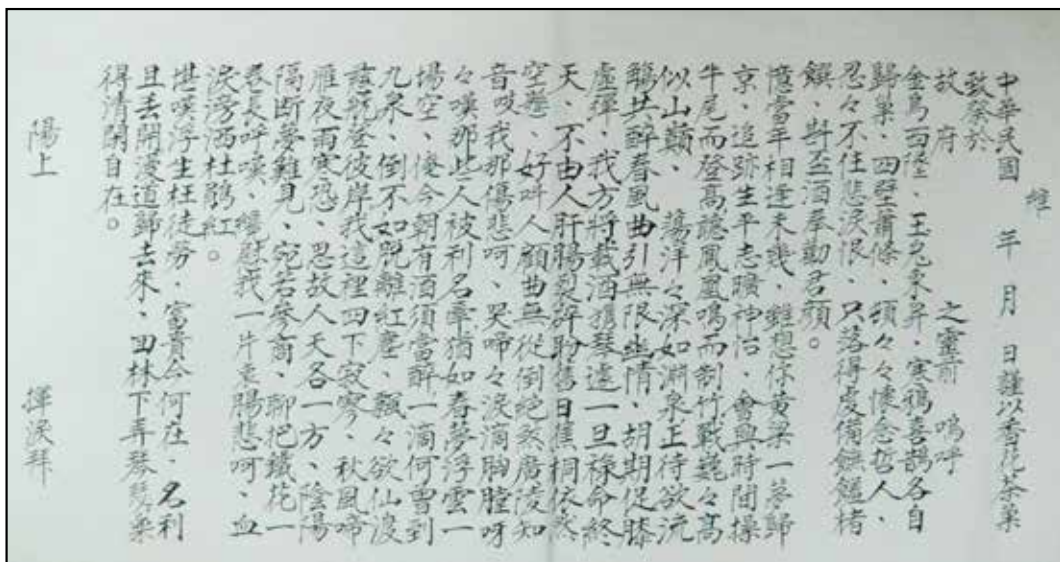 維
中華民國　年　月　日謹以香花茶菓
致祭於
故　府　之靈前　嗚呼
金烏西墜、玉兔東昇、寒鴉喜鵲各自
歸巢、四壁蕭條、頻々懷念哲人、
忍々不住悲淚恨、只落得虔備無鑑楮
饌、斟盃酒奉勸君顏。
憶當年相逢未幾、雖想你黃梁一夢歸
京、追跡生平志曠神怡、會與時間操
牛尾而登高聽鳳凰鳴而制竹戰巍々高
似山巔、蕩洋々深如淵泉正待欲流
觴共醉春風曲引無限幽情、胡期促膝
虛彈、我方將載酒携琴遠一旦祿命終
天、不由人肝腸裂碎盼舊日焦桐依然
空懸、好叫人顧曲無從倒絕然廣陵知
音哎我那傷悲呵、哭啼々淚滴胸膛呀
々嘆那些人被利名牽猶如春夢浮雲一
場空、俺今朝有酒須當醉一滴何曾到
九泉、倒不如脫離紅塵、飄々欲仙渡
慈航登彼岸我這裡四下寂寥、秋風啼
雁夜雨寒恐、思故人天各一方、陰陽
隔斷夢難見、宛若參商、聊把蠟花一
卷長呼嘆、繼慰我一片衷腸悲呵、血
淚滂洒杜鵑紅。
堪嘆浮生枉徒勞、富貴今何在、名利
且丟開漫道歸去來、回林下弄琴棋樂
得清閒自在。
陽上　揮淚拜